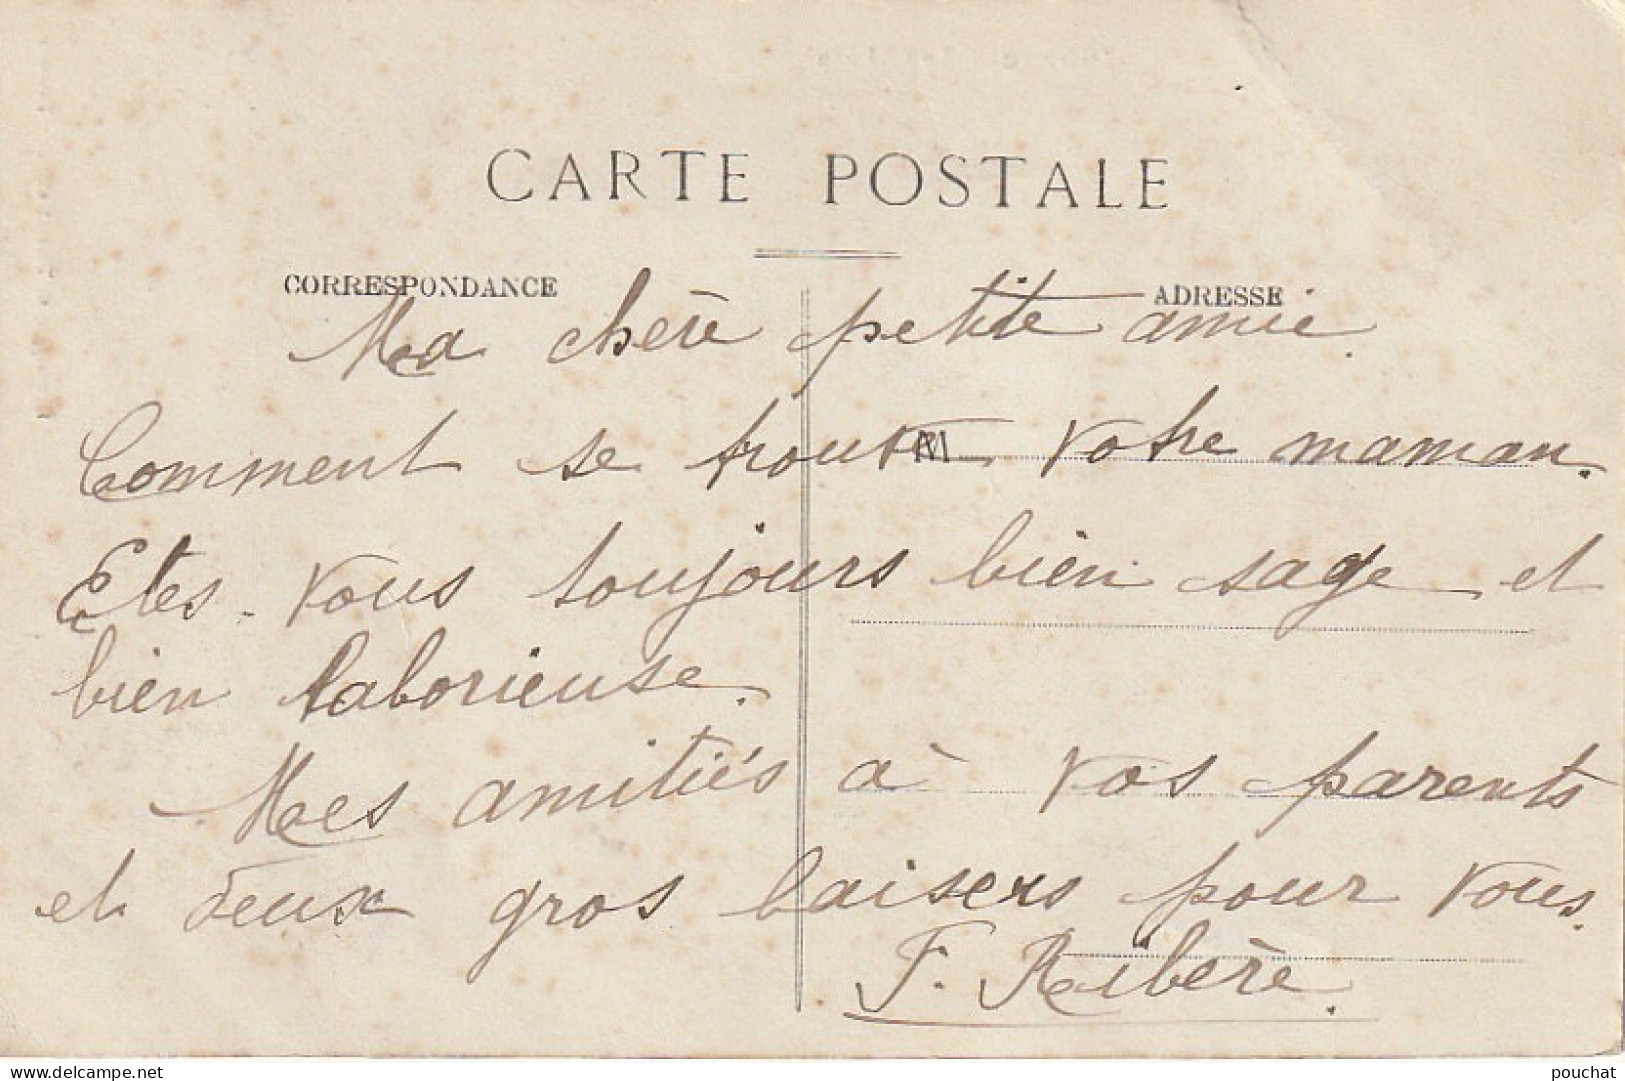 CARTE POSTALE
CORRESPONDANCE
ADRESSE
Ma chère petite amie.
Comment se trouve votre maman.
Etes-vous toujours bien sage et
bien laborieuse.
Mes amitiés à vos parents
et deux gros baisers pour vous.
F. Ribère.
delcampe.net
pouchat